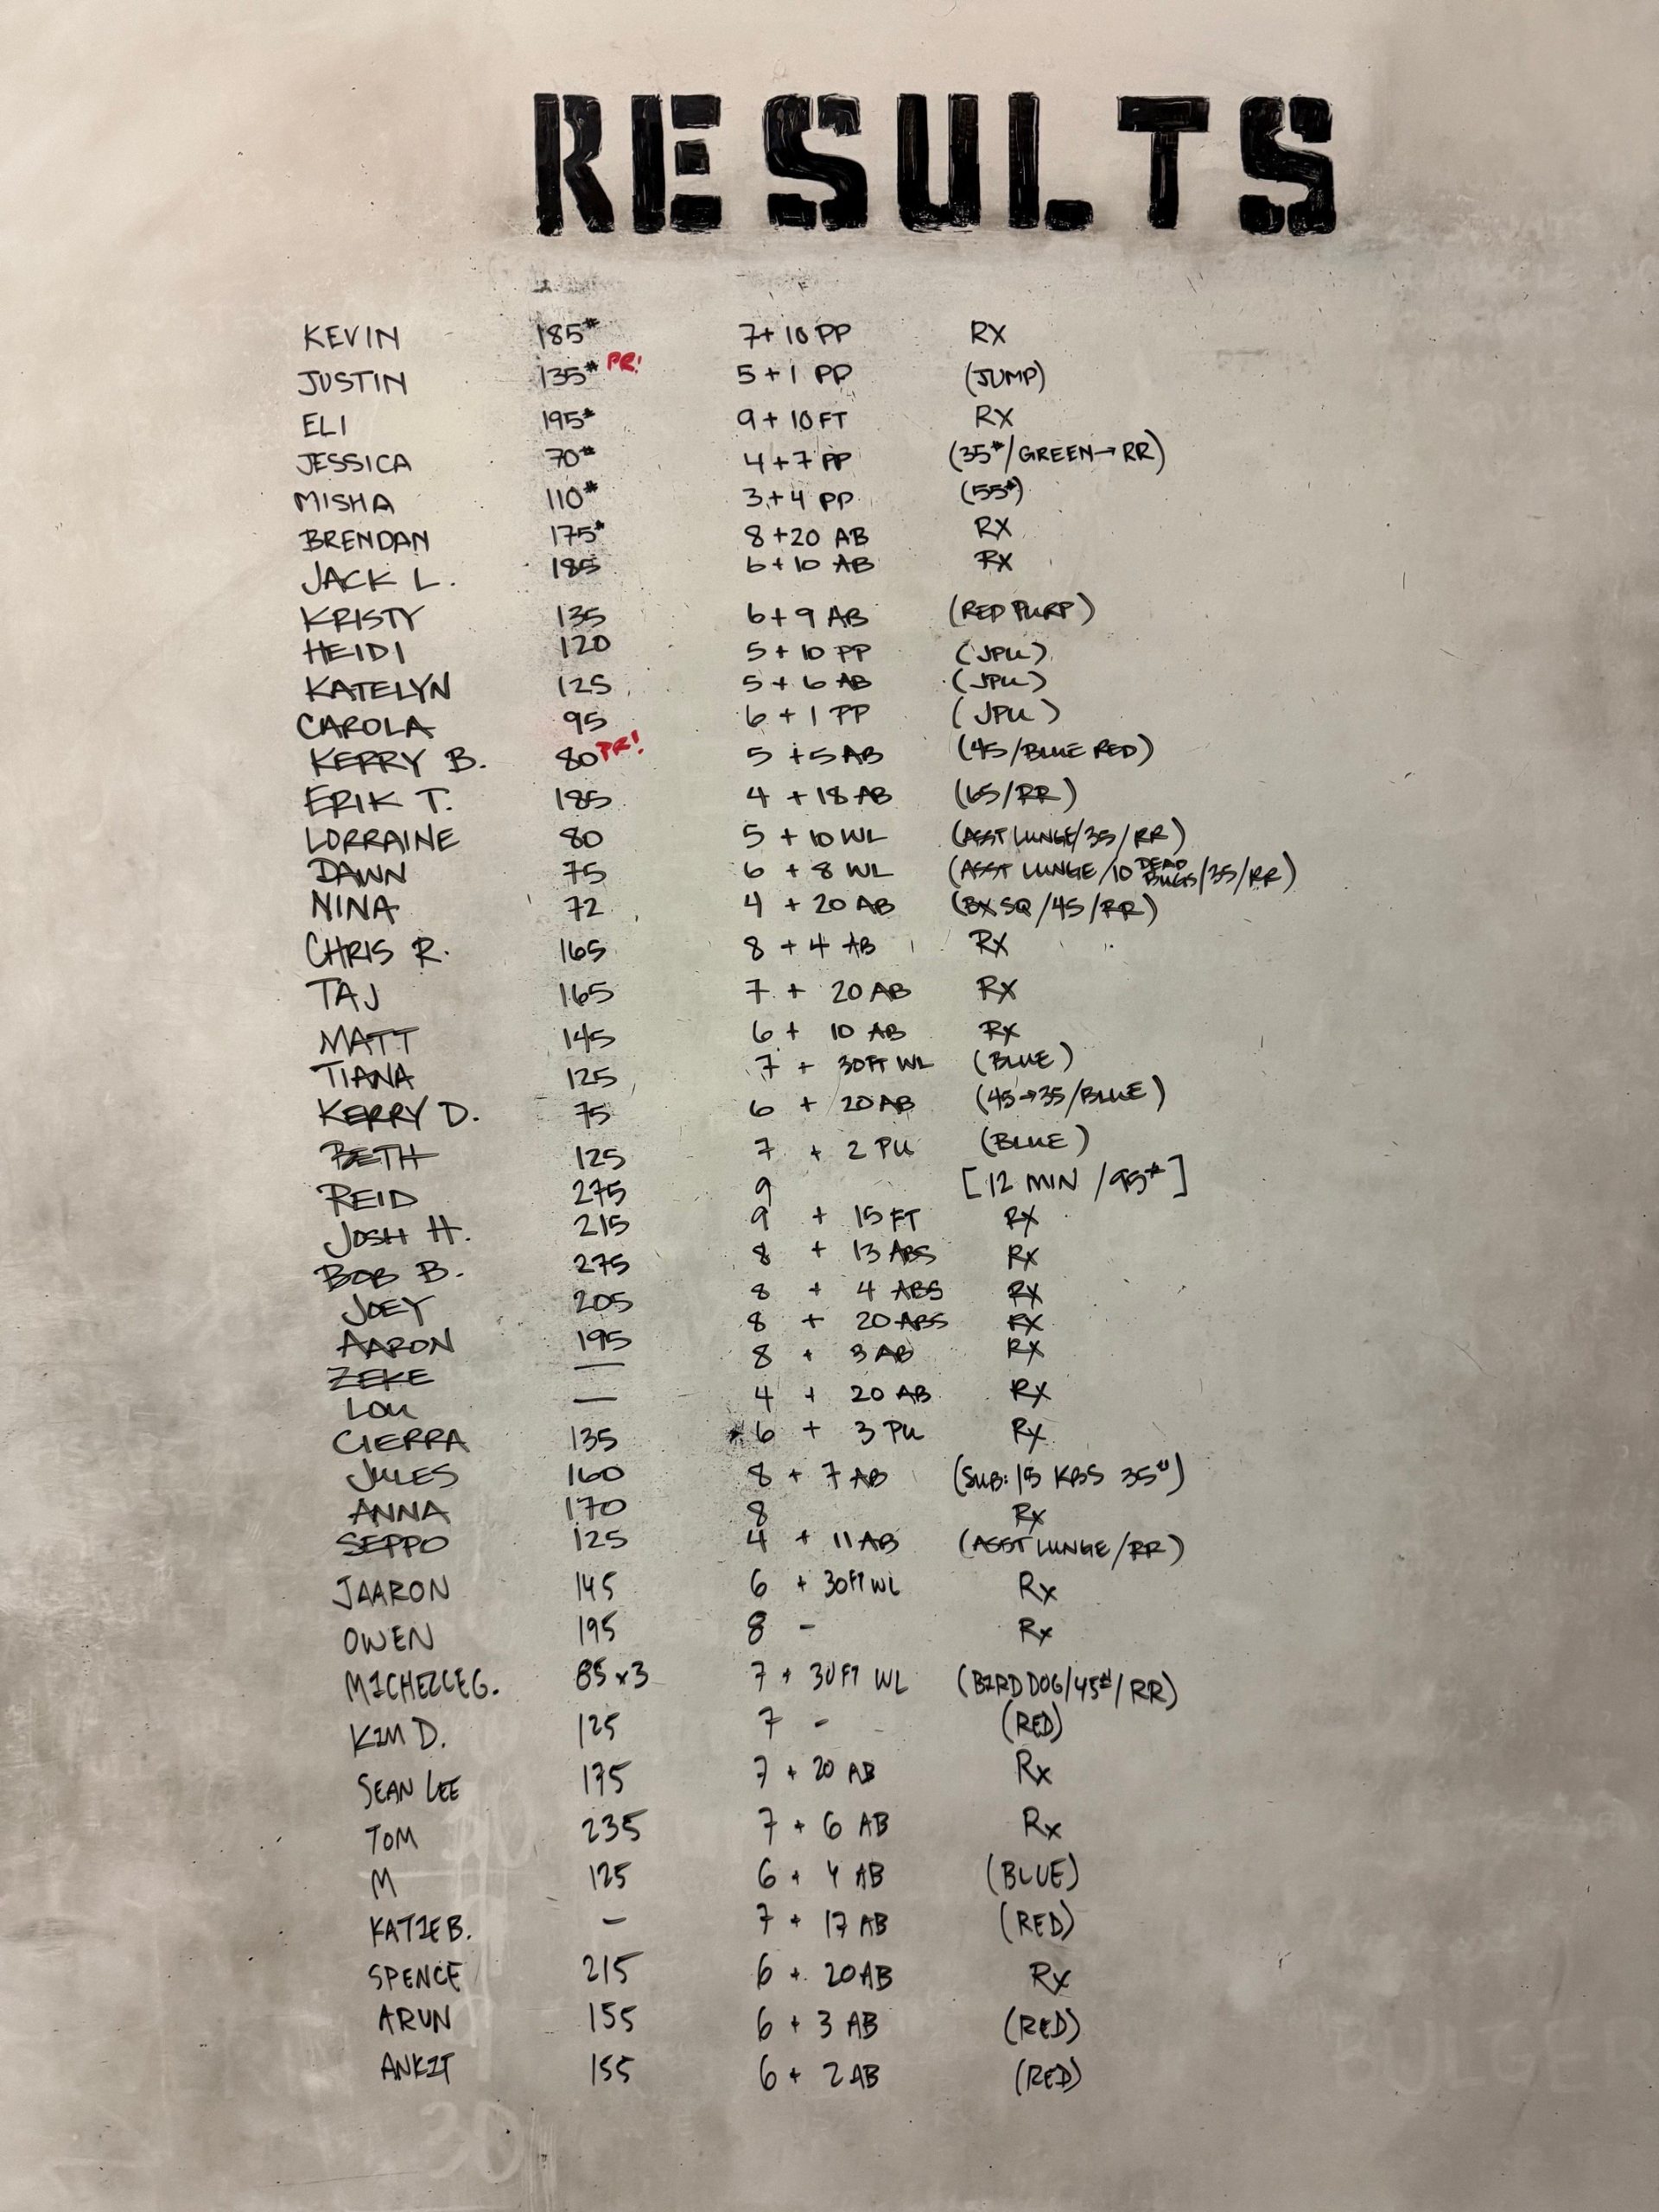 RESULTS
KEVIN 185# 7+10 PP RX
JUSTIN 135# PR! 5+1 PP (JUMP)
ELI 195# 9+10 FT RX
JESSICA 70# 4+7 PP (35#/GREEN→RR)
MISHA 110# 3+4 PP (55#)
BRENDAN 175# 8+20 AB RX
JACK L. 185 6+10 AB RX
KRISTY 135 6+9 AB (RED PURP)
HEIDI 120 5+10 PP (JPU)
KATELYN 125 5+6 AB (JPU)
CAROLA 95 6+1 PP (JPU)
KERRY B. 80 PR! 5+5 AB (45/BLUE RED)
ERIK T. 185 4+18 AB (65/RR)
LORRAINE 80 5+10 WL (ASST LUNGE/35/RR)
DAWN 75 6+8 WL (ASST LUNGE/10 DEAD BUGS/35/RR)
NINA 72 4+20 AB (BX SQ/45/RR)
CHRIS R. 165 8+4 AB RX
TAJ 165 7+20 AB RX
MATT 145 6+10 AB RX
TIANA 125 7+30FT WL (BLUE)
KERRY D. 75 6+20 AB (45→35/BLUE)
BETH 125 7+2 PU (BLUE)
REID 275 9 [12 MIN/95#]
JOSH H. 215 9+15 FT RX
BOB B. 275 8+13 ABS RX
JOEY 205 8+4 ABS RX
AARON 195 8+20 ABS RX
ZEKE — 8+3 AB RX
LOU — 4+20 AB RX
CIERRA 135 6+3 PU RX
JULES 160 8+7 AB (SUB: 15 KBS 35#)
ANNA 170 8 RX
SEPPO 125 4+11 AB (ASST LUNGE/RR)
JAARON 145 6+30FT WL Rx
OWEN 195 8 - Rx
MICHELLE G. 85x3 7+30FT WL (BIRD DOG/45#/RR)
KIM D. 125 7 - (RED)
SEAN LEE 175 7+20 AB Rx
TOM 235 7+6 AB Rx
M 125 6+4 AB (BLUE)
KATIE B. - 7+17 AB (RED)
SPENCE 215 6+20 AB Rx
ARUN 155 6+3 AB (RED)
ANKIT 155 6+2 AB (RED)